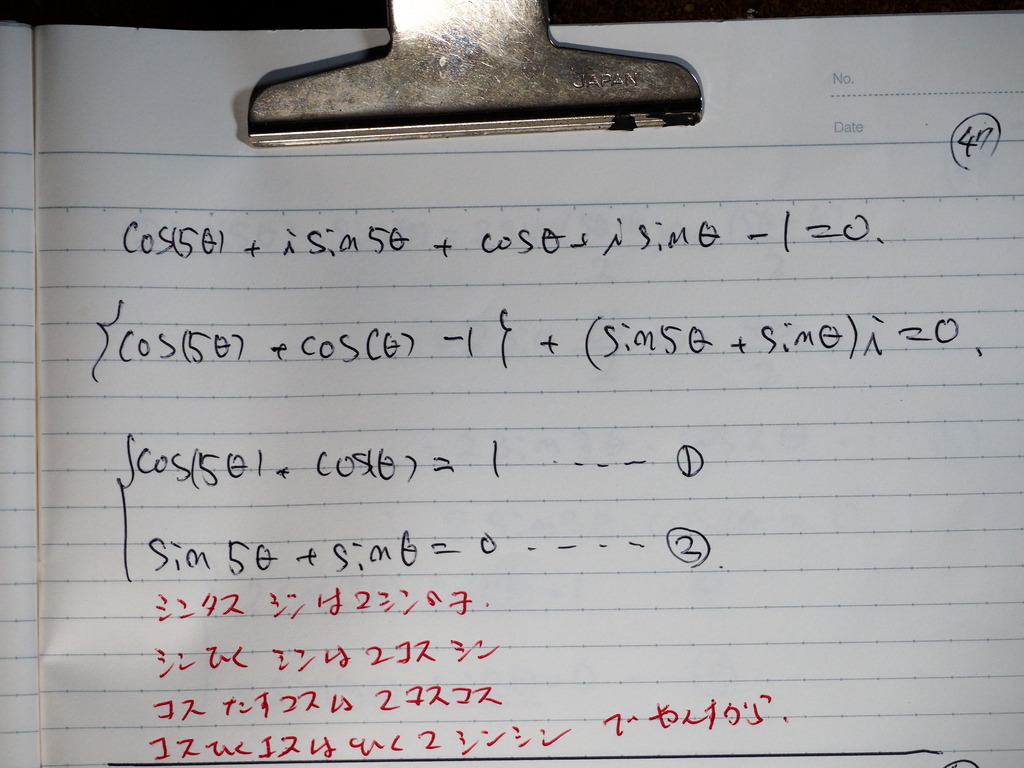 JAPAN
No.
Date
47
cos(5θ) + i sin5θ + cosθ + i sinθ - 1 = 0.
{cos(5θ) + cos(θ) - 1} + (sin5θ + sinθ)i = 0.
cos(5θ) + cos(θ) = 1 ..... ①
sin5θ + sinθ = 0 ..... ②.
シンタス シンは2シン
シンひく シンは2コス シン
コス たすコスは 2コスコス
コスひくコスはひく2シンシン でやんすから.